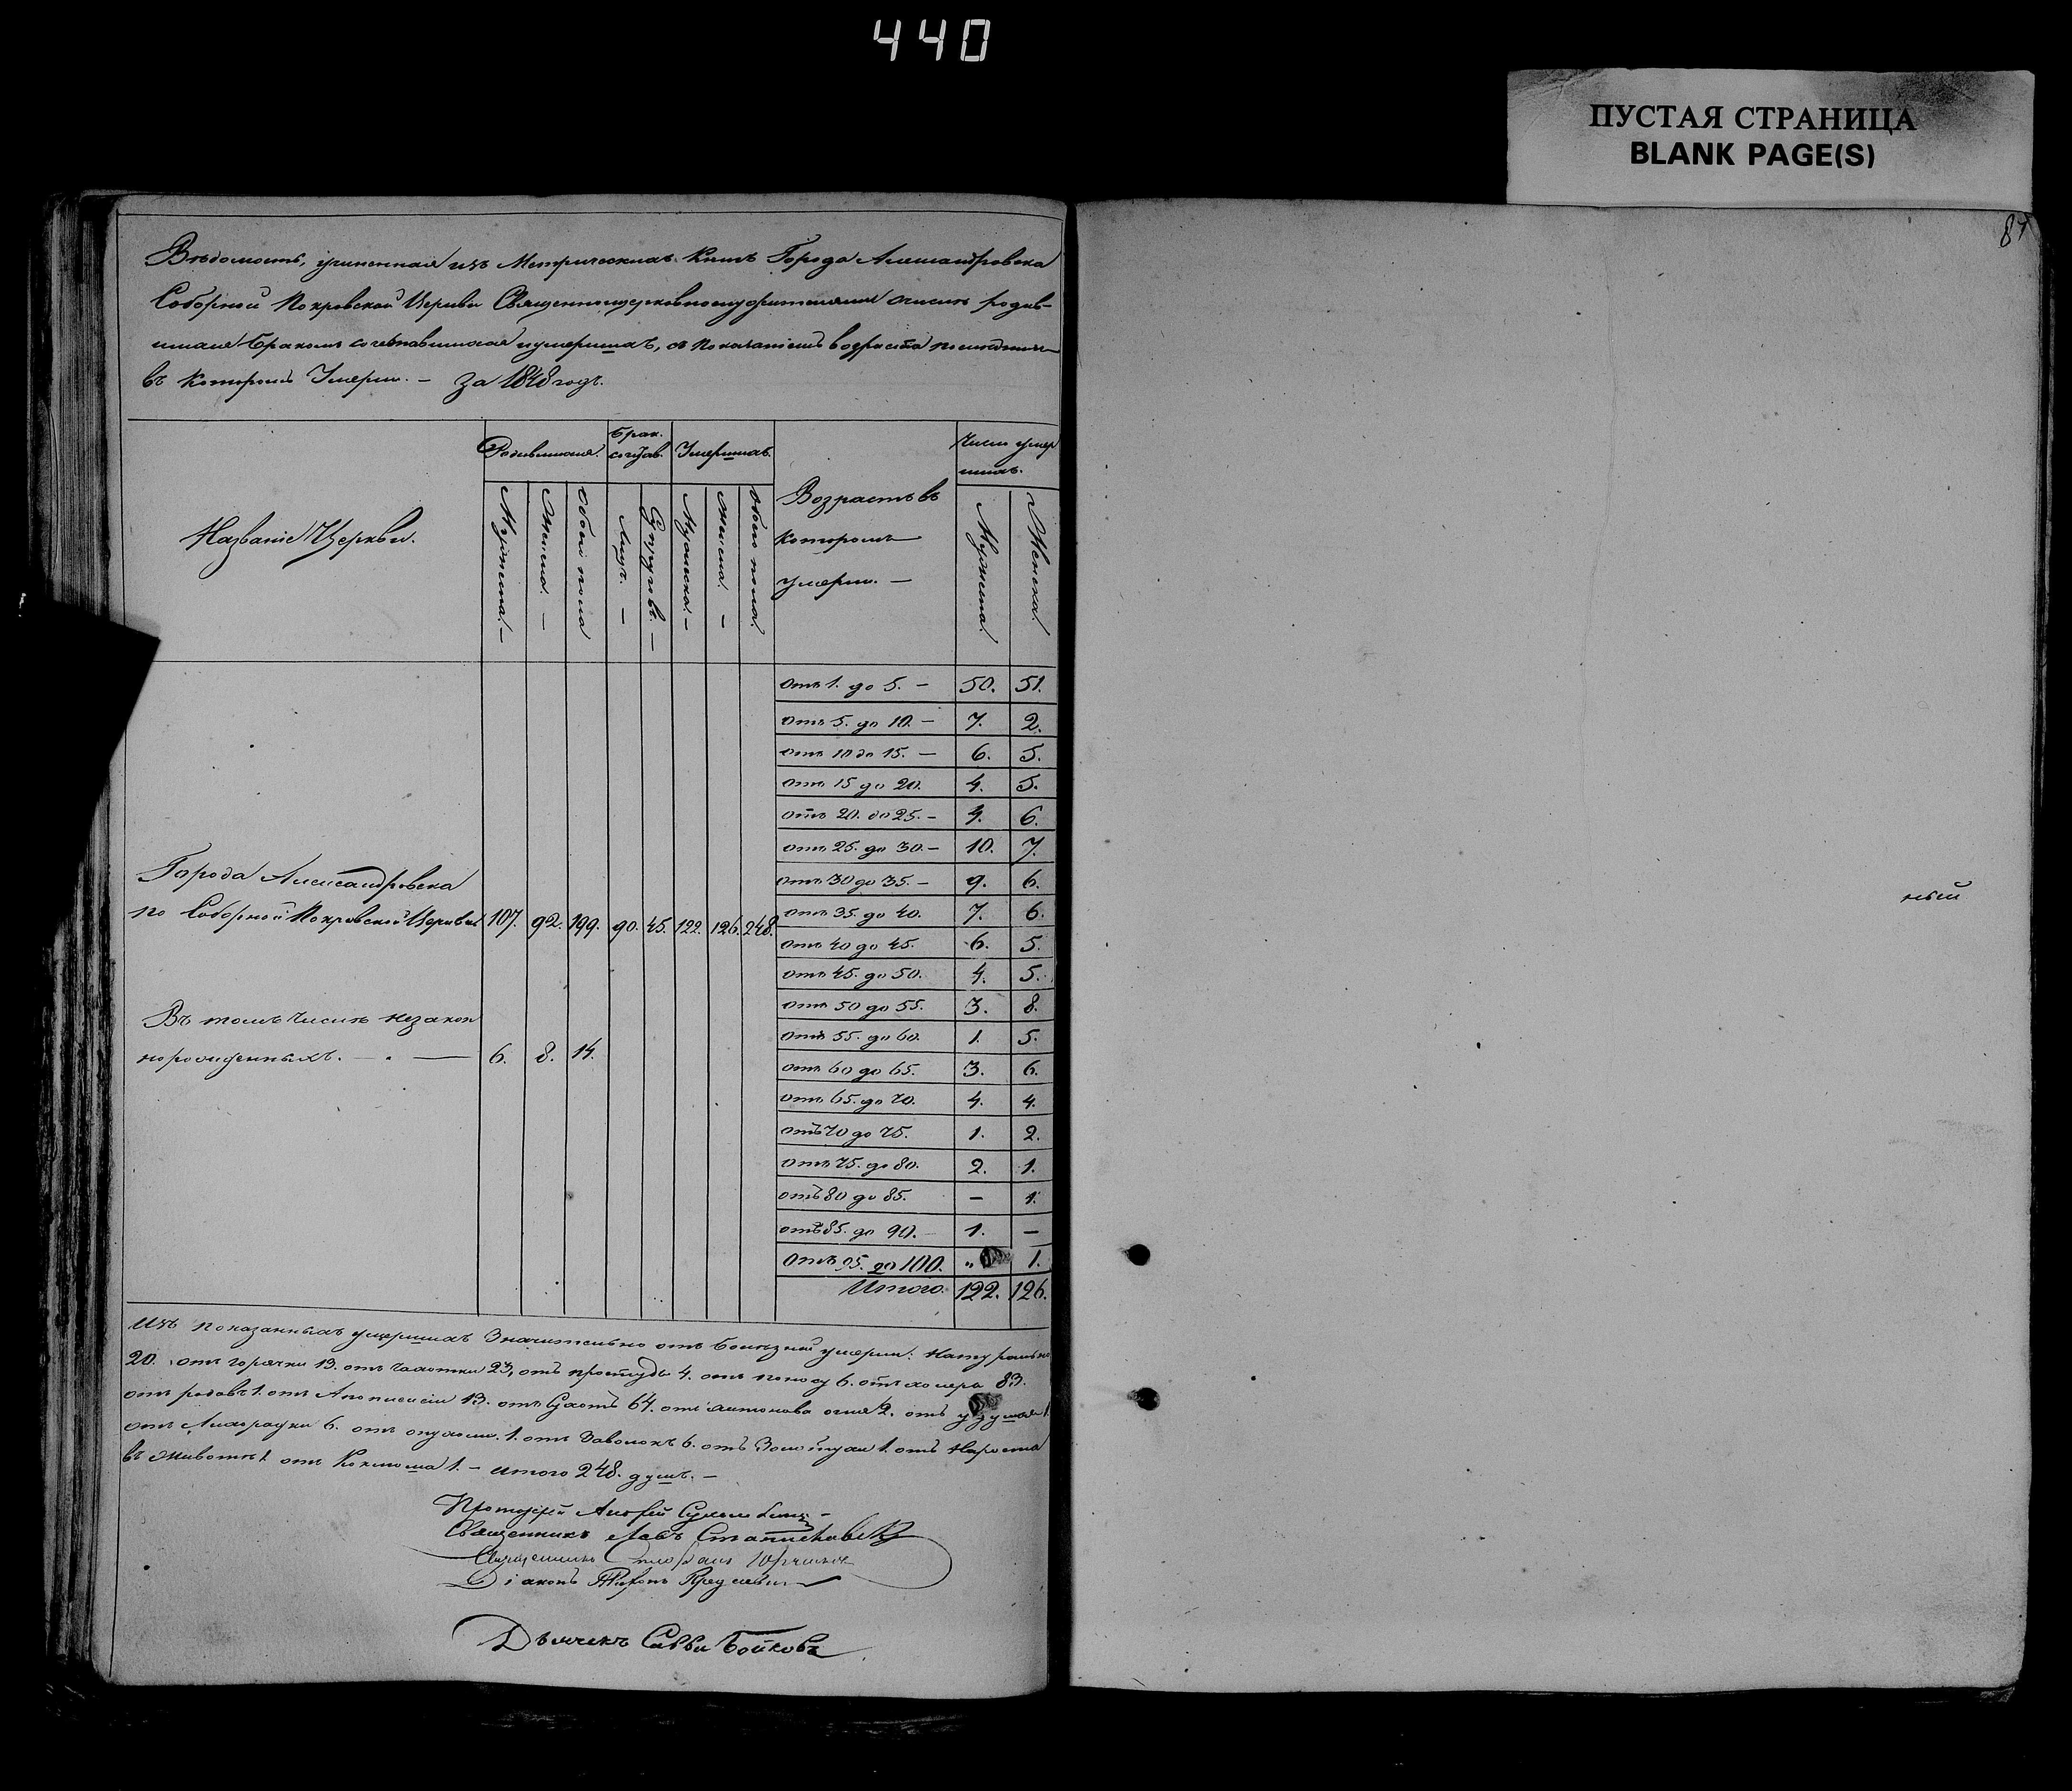 440
ПУСТАЯ СТРАНИЦА
BLANK PAGE(S)
87
Вѣдомость, учиненная изъ Метрическихъ Книгъ Города Александровска
Соборной Покровской Церкви Священноцерковнослужителями о числѣ родив-
шихся бракомъ сочетавшихся и умершихъ, съ показаніемъ возраста последнихъ
въ которомъ Умерли. – за 1848 годъ.
Названіе Церкви.
Родившихся.
Брак. сочетав.
Умершихъ.
Возрастъ въ которомъ умерли. –
Число умер шихъ.
Мужеска. –
Женска. –
Обоего пола
Лицъ. –
Супруговъ. –
Мужеска. –
Женска. –
Обоего пола.
Мужеска.
Женска.
отъ 1. до 5. – 50. 51.
отъ 5. до 10. – 7. 2.
отъ 10 до 15. – 6. 5.
отъ 15 до 20. 4. 5.
отъ 20. до 25. – 4. 6.
отъ 25. до 30. – 10. 7.
отъ 30 до 35. – 9. 6.
отъ 35. до 40. 7. 6.
отъ 40 до 45. 6. 5.
отъ 45. до 50. 4. 5.
отъ 50 до 55. 3. 8.
отъ 55. до 60. 1. 5.
отъ 60 до 65. 3. 6.
отъ 65. до 70. 4. 4.
отъ 70 до 75. 1. 2.
отъ 75. до 80. 2. 1.
отъ 80 до 85. – 1.
отъ 85. до 90. – 1. –
отъ 95. до 100. „ 1.
Итого. 122. 126.
Города Александровска
по Соборной Покровской Церкви 107. 92. 199. 90. 45. 122. 126. 248.
Въ томъ числѣ незакон
норожденныхъ. – . – 6. 8. 14.
ный
Изъ показанныхъ умершихъ Значительно отъ болѣзней умерли: натурально
20. отъ горячки 13. отъ чахотки 23, отъ простуды 4. отъ поносу 6. отъ холеры 83.
отъ родовъ 1. отъ Апоплексіи 13. отъ 64. отъ антонова огня 2. отъ удушья 1
отъ Лихорадки 6. отъ опухоли. 1. отъ 6. отъ Золотухи 1. отъ нароста
въ животѣ 1 отъ Коклюша 1. – итого 248. душъ. –
Протоіерей Андрей
Священникъ Левъ
Священникъ
Діаконъ
Дьячекъ Савва Бойковъ